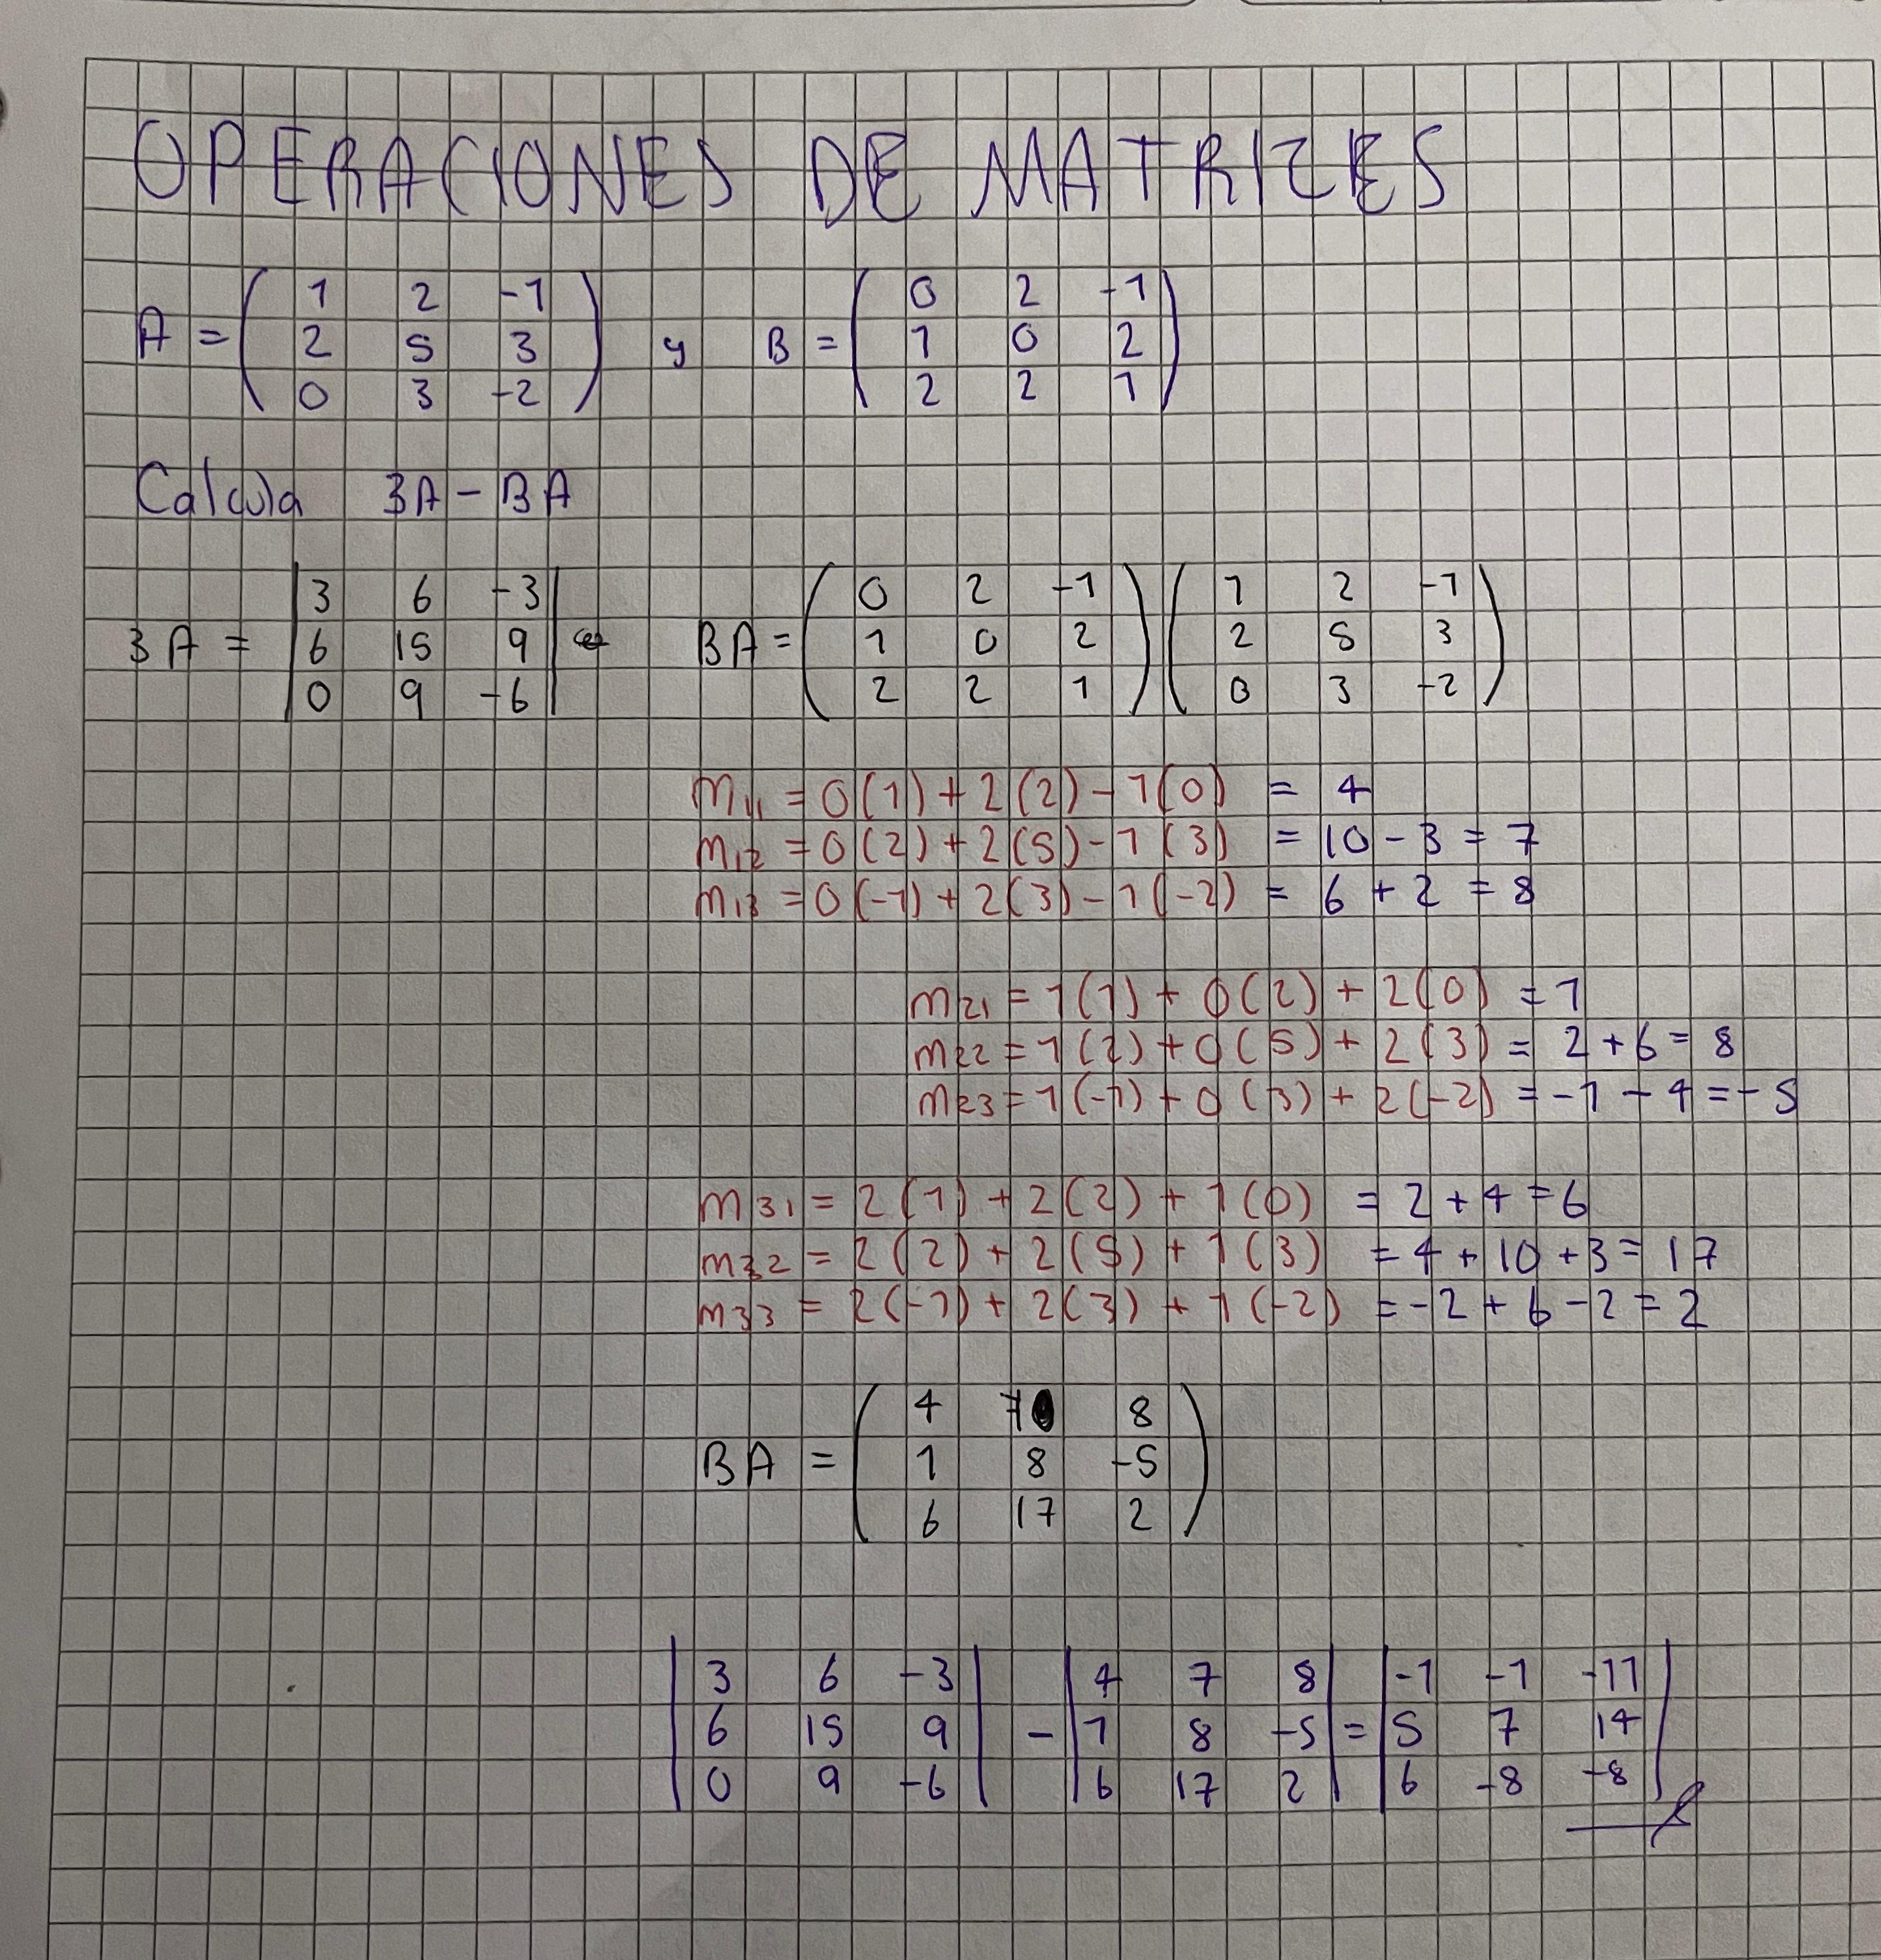 OPERACIONES DE MATRIZES
A = ( 1 2 -1
2 5 3
0 3 -2 ) y B = ( 0 2 -1
1 0 2
2 2 1 )
Calcula 3A - BA
3A = | 3 6 -3
6 15 9
0 9 -6 |
BA = ( 0 2 -1
1 0 2
2 2 1 ) ( 1 2 -1
2 5 3
0 3 -2 )
m11 = 0(1) + 2(2) - 1(0) = 4
m12 = 0(2) + 2(5) - 1(3) = 10 - 3 = 7
m13 = 0(-1) + 2(3) - 1(-2) = 6 + 2 = 8
m21 = 1(1) + 0(2) + 2(0) = 1
m22 = 1(2) + 0(5) + 2(3) = 2 + 6 = 8
m23 = 1(-1) + 0(3) + 2(-2) = -1 - 4 = -5
m31 = 2(1) + 2(2) + 1(0) = 2 + 4 = 6
m32 = 2(2) + 2(5) + 1(3) = 4 + 10 + 3 = 17
m33 = 2(-1) + 2(3) + 1(-2) = -2 + 6 - 2 = 2
BA = ( 4 7 8
1 8 -5
6 17 2 )
| 3 6 -3 | | 4 7 8 | | -1 -1 -11 |
| 6 15 9 | - | 1 8 -5 | = | 5 7 14 |
| 0 9 -6 | | 6 17 2 | | 6 -8 -8 |